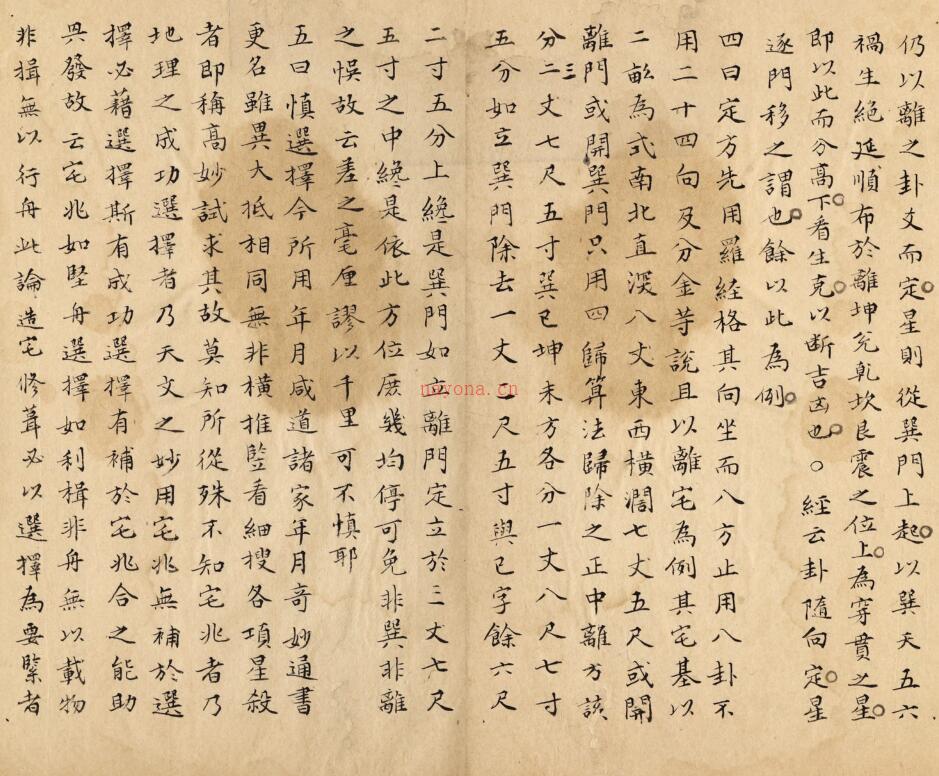 仍以離之卦爻而定星則從巽門上起以巽天五六
禍生絕延順布於離坤兌乾坎艮震之位上為穿貫之星
即以此而分高下看生克以斷吉凶也○經云卦隨向定星
逐門移之謂也餘以此為例
四曰定方先用羅經格其向坐而八方止用八卦不
用二十四向及分金等說且以離宅為例其宅基以
二畝為式南北直深八丈東西橫濶七丈五尺或開
離門或開巽門只用四歸算法歸除之正中離方該
分二丈七尺五寸巽巳坤未方各分一丈八尺七寸
三
五分如立巽門除去一丈二尺五寸與巳字餘六尺
二寸五分上纔是巽門如立離門定立於三丈七尺
五寸之中纔是依此方位庶幾均停可免非巽非離
之悞故云差之毫厘謬以千里可不慎耶
五曰慎選擇今所用年月咸道諸家年月奇妙通書
更名雖異大抵相同無非橫推豎看細搜各項星殺
者即稱高妙試求其故莫知所從殊不知宅兆者乃
地理之成功選擇者乃天文之妙用宅兆無補於選
擇必藉選擇斯有成功選擇有補於宅兆合之能助
其發故云宅兆如堅舟選擇如利楫非舟無以載物
非揖無以行舟此論造宅修葺必以選擇為要緊者
noyona.cn